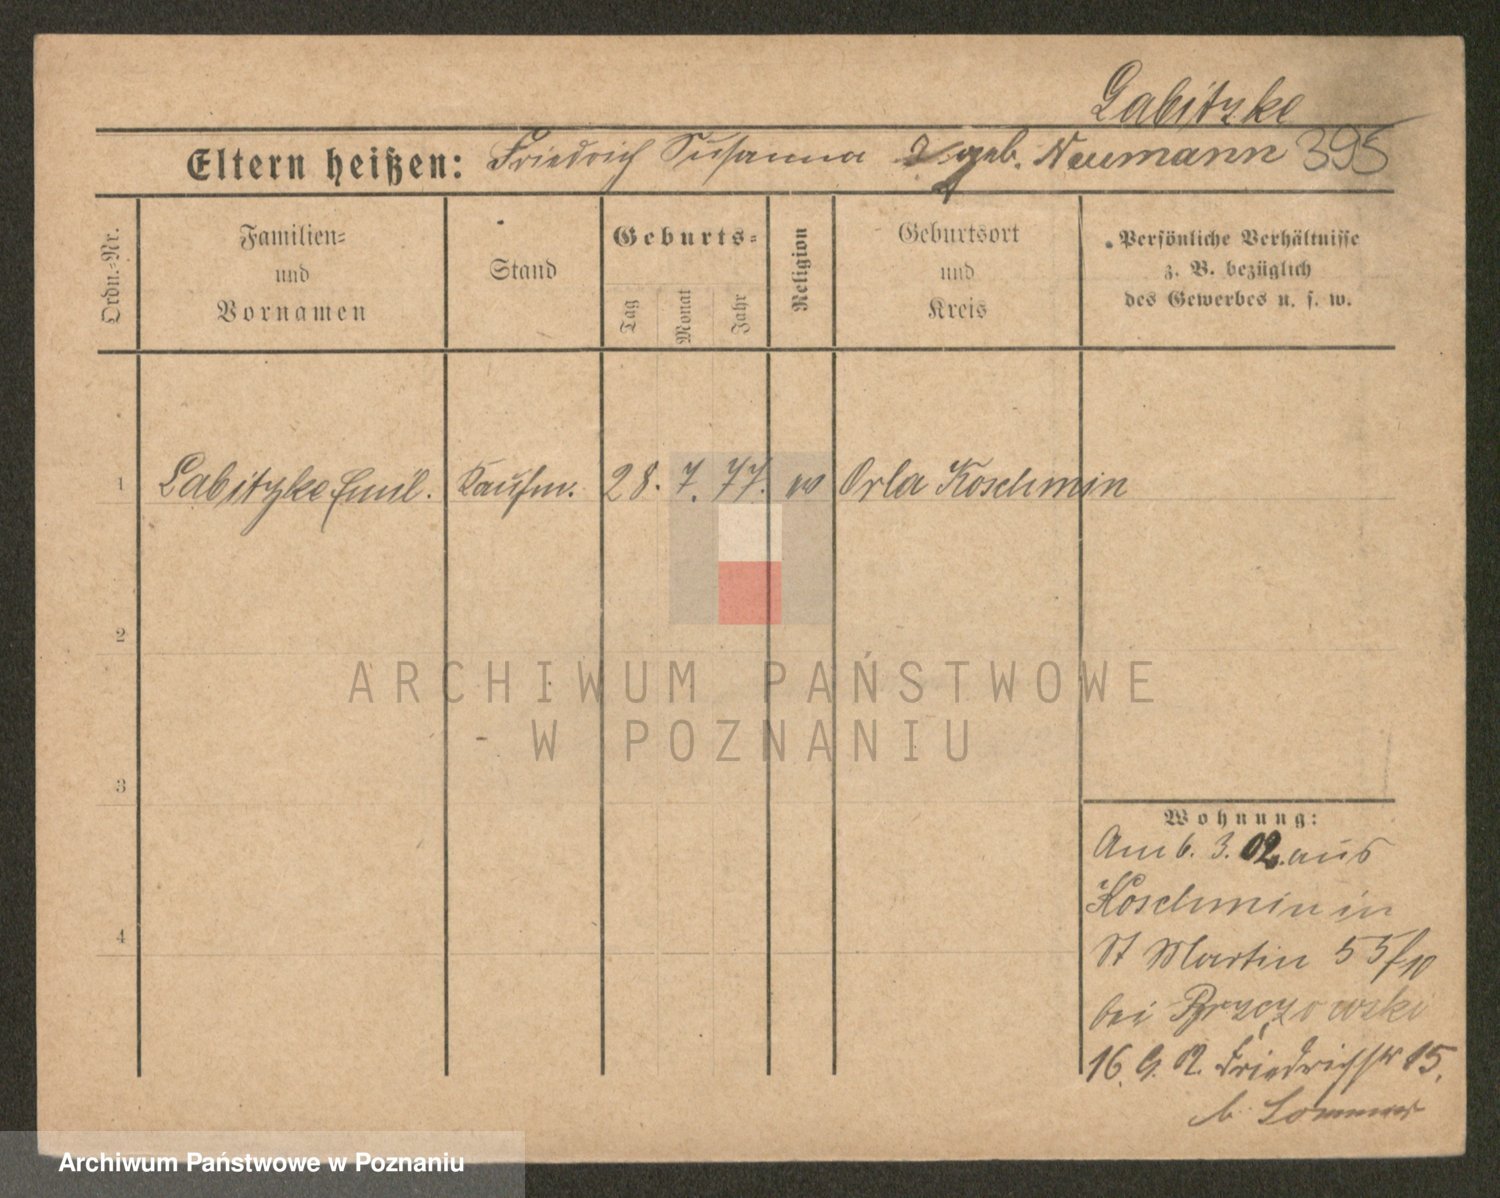 Labitzke
Eltern heißen: Friedrich Susanna geb. Neumann 395
Ordn.=Nr.
Familien=
und
Vornamen
Stand
Geburts=
Tag
Monat
Jahr
Religion
Geburtsort
und
Kreis
Persönliche Verhältnisse
z. B. bezüglich
des Gewerbes u. s. w.
1 Labitzke Emil. Kaufm. 28. 7. 77. Orla Koschmin
2
3
4
Wohnung:
Am 6. 3. 02. aus
Koschmin in
St Martin 55
bei
16. 9. 02. Friedrichstr 15.
b. Sommer
ARCHIWUM PAŃSTWOWE
W POZNANIU
Archiwum Państwowe w Poznaniu